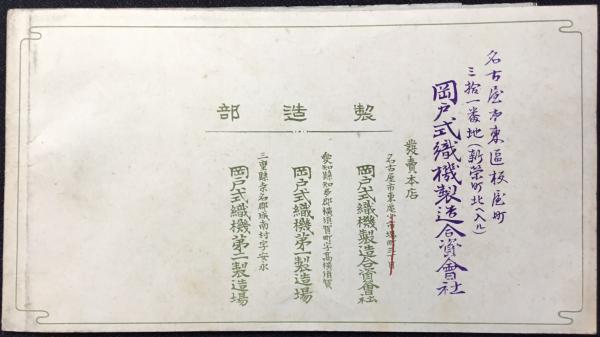 名古屋市東區板屋町
三拾一番地(新榮町北ヘ入ル)
岡戸式織機製造合資會社
製造部
發賣本店
名古屋市東區小市場町三丁目
岡戸式織機製造合資會社
愛知縣知多郡横須賀町字高横須賀
岡戸式織機第一製造場
三重縣桑名郡城南村字安永
岡戸式織機第二製造場